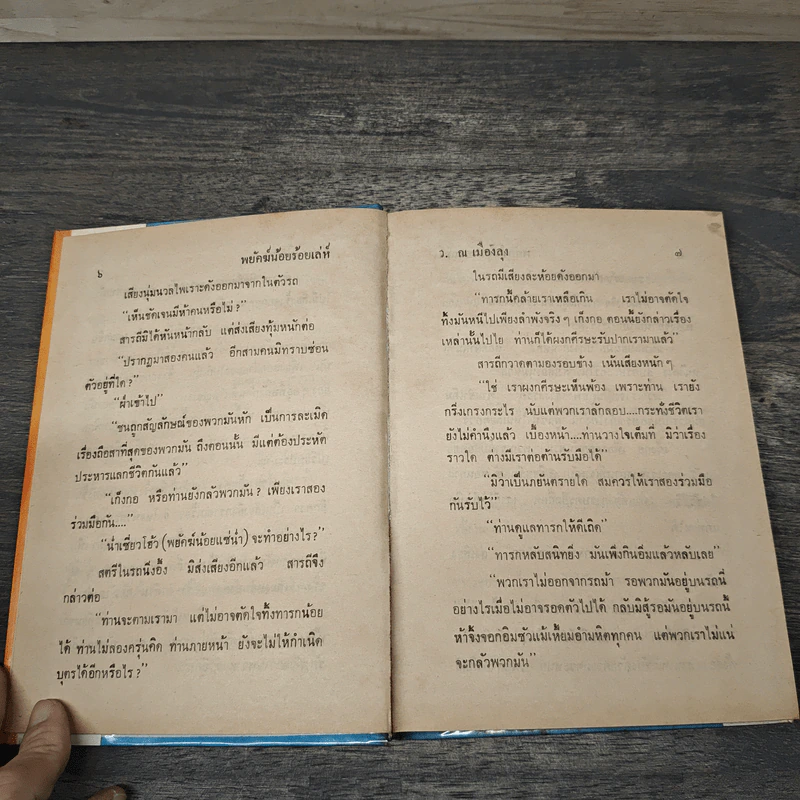 ๖
พยัคฆ์น้อยร้อยเล่ห์
เสียงนุ่มนวลไพเราะดังออกมาจากในตัวรถ
“เห็นชัดเจนมีห้าคนหรือไม่?”
สารถีมิได้หันหน้ากลับ แต่ส่งเสียงทุ้มหนักต่อ
“ปรากฏมาสองคนแล้ว อีกสามคนมิทราบซ่อน
ตัวอยู่ที่ใด?”
“ฝ่าเข้าไป”
“ชนถูกสัญลักษณ์ของพวกมันหัก เป็นการละเมิด
เรื่องถือสาที่สุดของพวกมัน ถึงตอนนั้น มีแต่ต้องประหัต
ประหารแลกชีวิตกันแล้ว”
“เก็งกอ หรือท่านยังกลัวพวกมัน? เพียงเราสอง
ร่วมมือกัน....”
“น่ำเซี่ยวโฮ้ว (พยัคฆ์น้อยแซ่น่ำ) จะทำอย่างไร?”
สตรีในรถนิ่งอึ้ง มิส่งเสียงอีกแล้ว สารถีจึง
กล่าวต่อ
“ท่านจะตามเรามา แต่ไม่อาจตัดใจทิ้งทารกน้อย
ได้ ท่านไม่ลองครุ่นคิด ท่านภายหน้า ยังจะไม่ให้กำเนิด
บุตรได้อีกหรือไร?”
ว. ณ เมืองลุง
๗
ในรถมีเสียงละห้อยดังออกมา
“ทารกนี้คล้ายเราเหลือเกิน เราไม่อาจตัดใจ
ทิ้งมันหนีไปเพียงลำพังจริง ๆ เก็งกอ ตอนนี้ยังกล่าวเรื่อง
เหล่านั้นไปไย ท่านก็ได้ผงกศีรษะรับปากเรามาแล้ว”
สารถีกวาดตามองรอบข้าง เน้นเสียงหนัก ๆ
“ใช่ เราผงกศีรษะเห็นพ้อง เพราะท่าน เรายัง
กริ่งเกรงกระไร นับแต่พวกเราลักลอบ....กระทั่งชีวิตเรา
ยังไม่คำนึงแล้ว เบื้องหน้า....ท่านวางใจเต็มที่ มิว่าเรื่อง
ราวใด ต่างมีเราต่อต้านรับมือได้”
“มิว่าเป็นภยันตรายใด สมควรให้เราสองร่วมมือ
กันรับไว้”
“ท่านดูแลทารกให้ดีเถิด”
“ทารกหลับสนิทยิ่ง มันเพิ่งกินอิ่มแล้วหลับเลย”
“พวกเราไม่ออกจากรถม้า รอพวกมันอยู่บนรถนี่
อย่างไรเมื่อไม่อาจรอดตัวไปได้ กลับมิสู้รอมันอยู่บนรถนี้
ห้าจิ้งจอกอิมซัวแม้เหี้ยมอำมหิตทุกคน แต่พวกเราไม่แน่
จะกลัวพวกมัน”